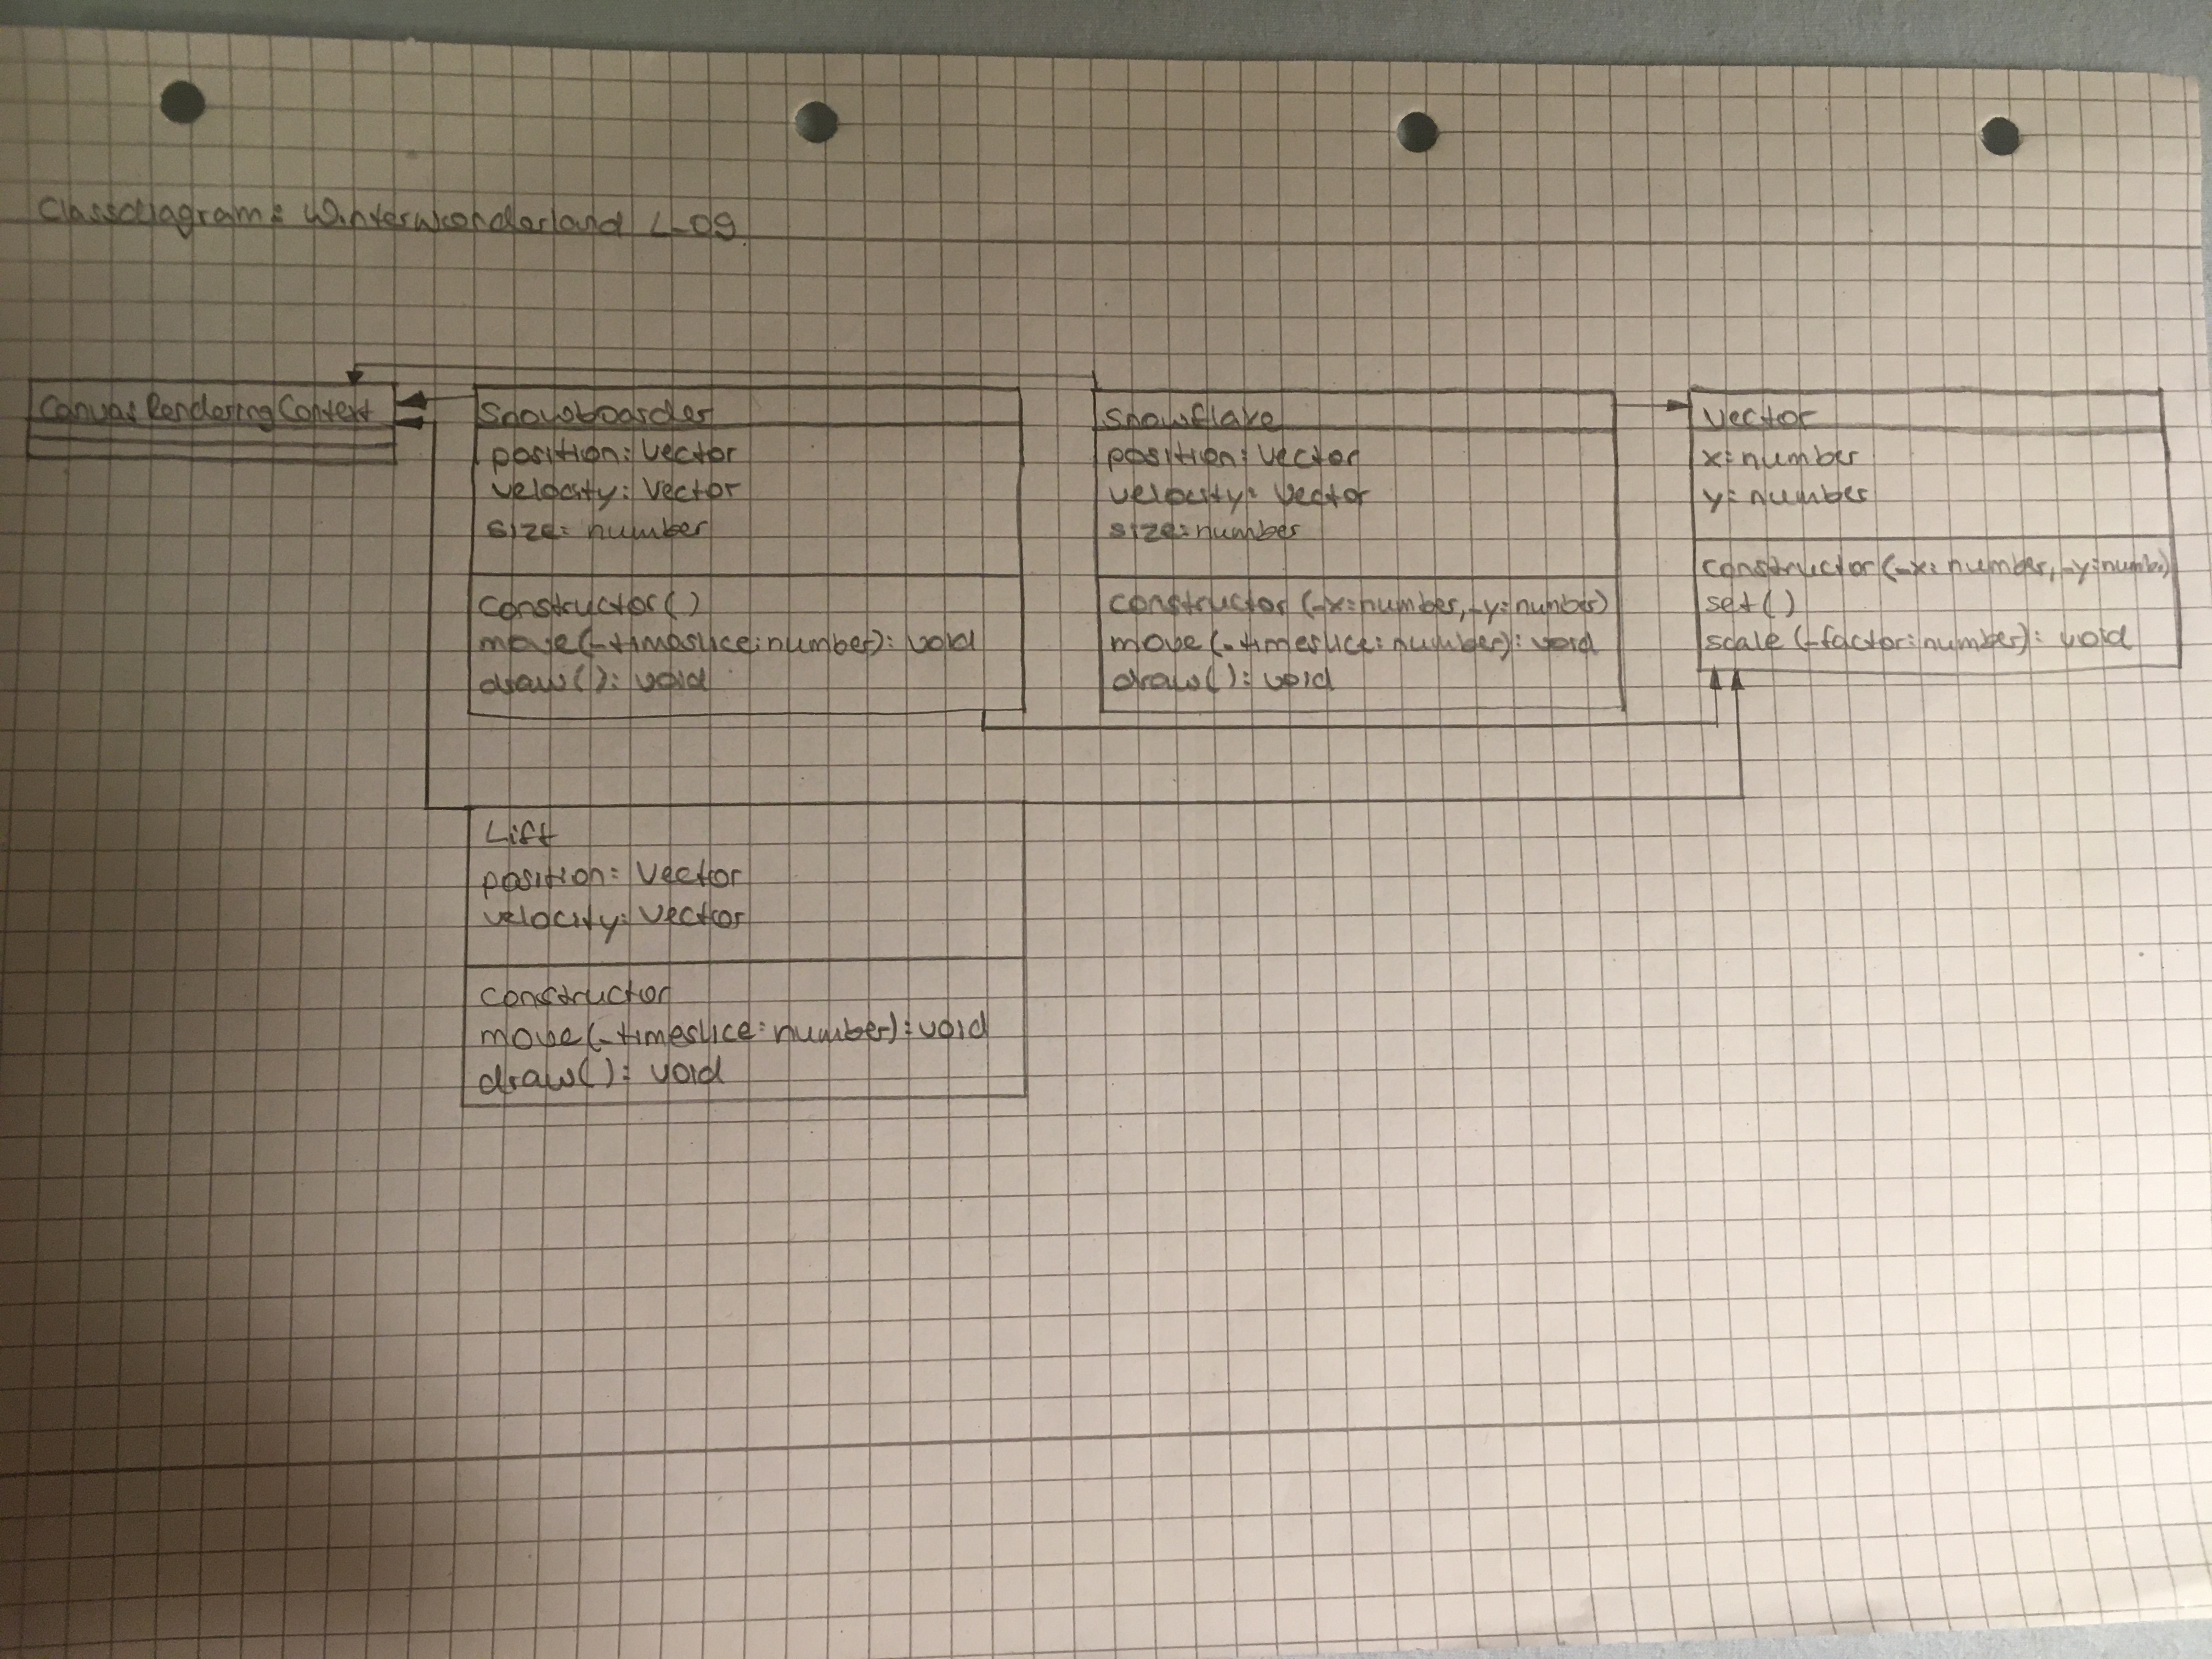 Classdiagram: Winterwonderland L-09
CanvasRenderingContext
Snowboarder
position: Vector
velocity: Vector
size: number
constructor()
move(_timeslice: number): void
draw(): void
Snowflake
position: Vector
velocity: Vector
size: number
constructor(_x: number, _y: number)
move(_timeslice: number): void
draw(): void
Vector
x: number
y: number
constructor(_x: number, _y: numb.)
set()
scale(_factor: number): void
Lift
position: Vector
velocity: Vector
constructor
move(_timeslice: number): void
draw(): void